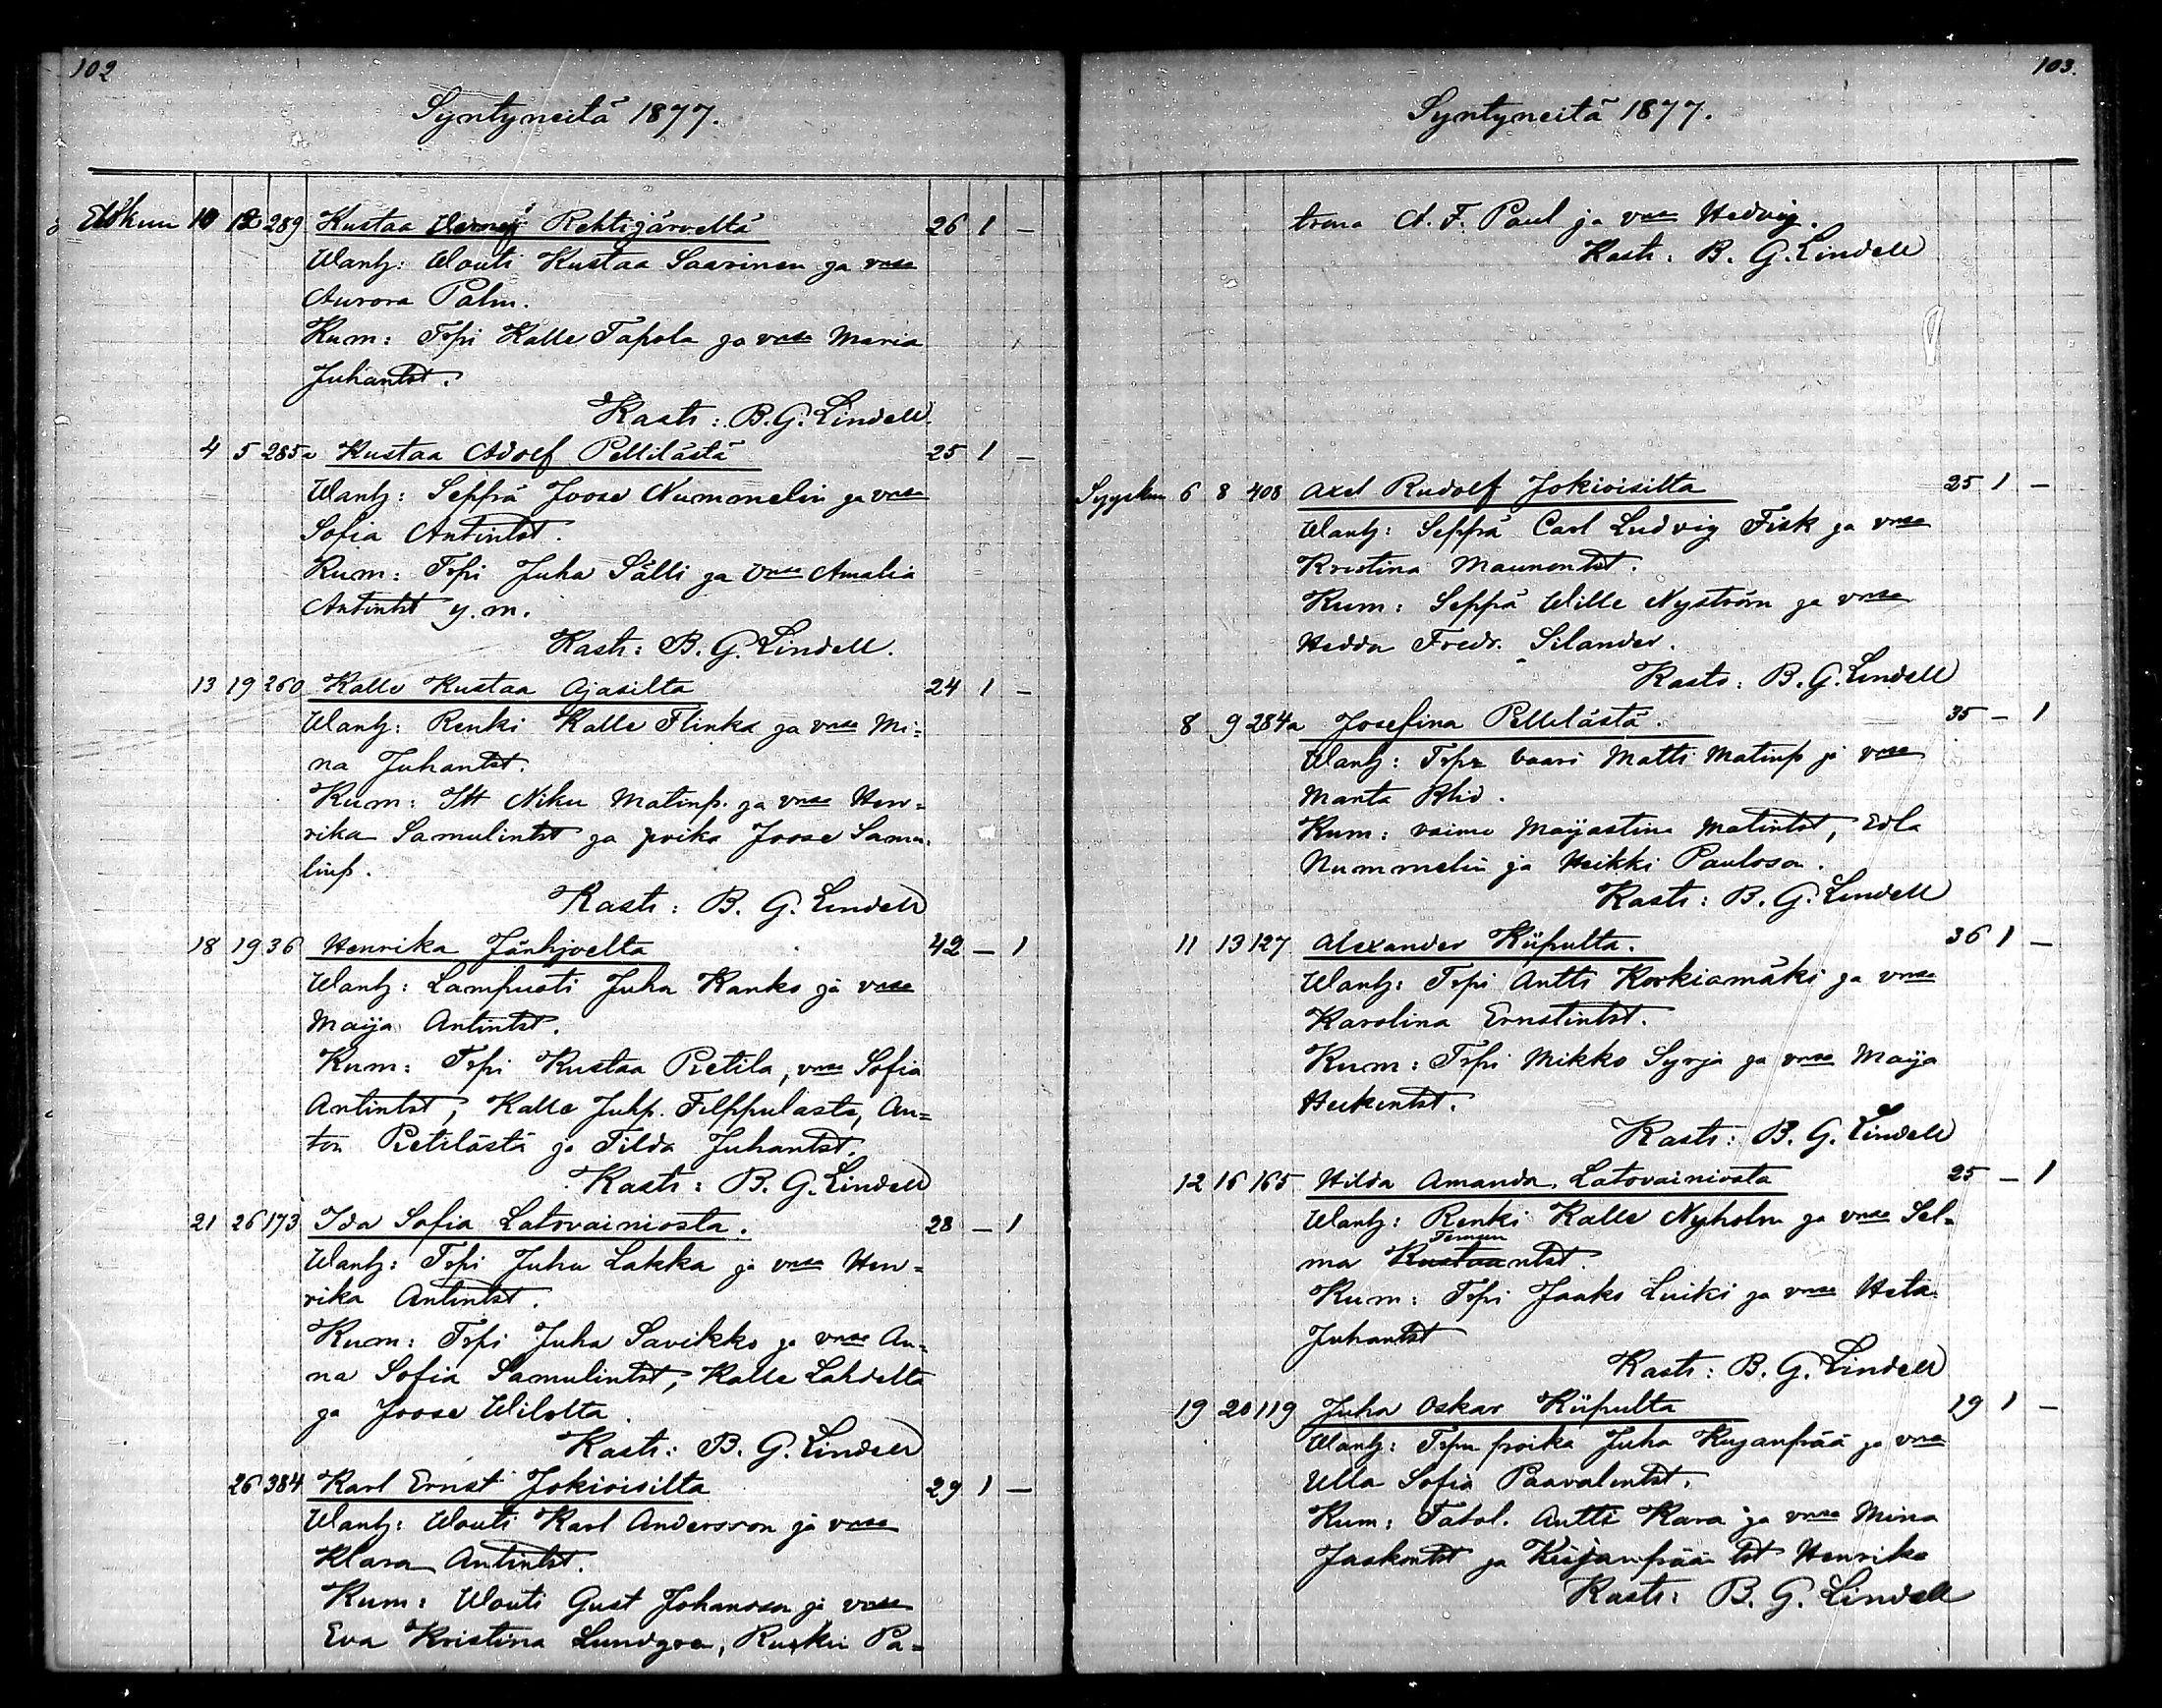 102
Syntyneitä 1877.
Elokuu 10 12 289 Kustaa Rehtijärveltä 26 1 —
Wanh: Wouti Kustaa Saarinen ja vmsa
Aurora Palm.
Kum: Trpi Kalle Tapola ja vmsa Maria
Juhantst.
Kasti: B. G. Lindell.
4 5 285a Kustaa Adolf Pellilästä 25 1 —
Wanh: Seppä Joose Nummelin ja vmsa
Sofia Antintst.
Kum: Trpi Juha Sälli ja vmsa Amalia
Antintst y.m.
Kasti: B. G. Lindell.
13 19 260 Kalle Kustaa Ojasilta 24 1 —
Wanh: Renki Kalle Flinks ja vmsa Mi=
na Juhantst.
Kum: Itt Niku Matinp. ja vmsa Hen=
rika Samulintst ja poika Joose Samu=
linp.
Kasti: B. G. Lindell
18 19 36 Henrika Jänhjoelta 42 — 1
Wanh: Lampuoti Juha Kanko ja vmsa
Maija Antintst.
Kum: Trpi Kustaa Pietila, vmsa Sofia
Antintst, Kalle Juhp. Filppulasta, An=
ton Pietilästä ja Tilda Juhantst.
Kasti: B. G. Lindell
21 26 173 Ida Sofia Latovainiosta. 28 — 1
Wanh: Trpi Juha Lakka ja vmsa Hen=
rika Antintst.
Kum: Trpi Juha Savikko ja vmsa An=
na Sofia Samulintst, Kalle Lahdelta
ja Joose Wilolta
Kasti: B. G. Lindell
26 384 Karl Ernst Jokioisilta 29 1 —
Wanh: Wouti Karl Andersson ja vmsa
Klara Antintst.
Kum: Wouti Gust Johansson ja vmsa
Eva Kristina Lundgren, Ruokin Pa=
103.
Syntyneitä 1877.
trona A. F. Paul ja vmsa Hedvig.
Kasti: B. G. Lindell
Syyskuu 6 8 408 Axel Rudolf Jokioisilta 25 1 —
Wanh: Seppä Carl Ludvig Fisk ja vmsa
Kristina Maunontst.
Kum: Seppä Wille Nyström ja vmsa
Hedda Fredr. Silander.
Kasti: B. G. Lindell
8 9 284a Josefina Pellilästä. 35 — 1
Wanh: Trpn vaari Matti Matinp ja vmsa
Manta
Kum: vaimo Maijastina Matintst, Edla
Nummelin ja Heikki Paulosa.
Kasti: B. G. Lindell
11 13 127 Alexander Kiipulta. 36 1 —
Wanh: Trpi Antti Korkiamäki ja vmsa
Karolina Ernstintst.
Kum: Trpi Mikko Syrja ja vmsa Maija
Heikintst.
Kasti: B. G. Lindell
12 16 165 Hilda Amanda Latovainiosta 25 — 1
Wanh: Renki Kalle Nyholm ja vmsa Sel=
ma Kustaantst.
Kum: Trpi Jaako Luiki ja vmsa Heta
Juhantst
Kasti: B. G. Lindell
19 20 119 Juha Oskar Kiipulta 19 1 —
Wanh: Trpn poika Juha Kujanpää ja vmsa
Ulla Sofia Paavalintst.
Kum: Talol. Antti Kara ja vmsa Mina
Jaakontst ja Kujanpään tst Henrika
Kasti: B. G. Lindell